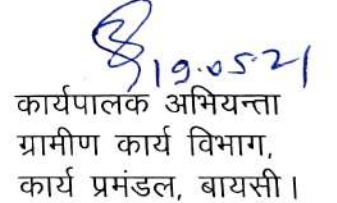 19.05.21
कार्यपालक अभियन्ता
ग्रामीण कार्य विभाग,
कार्य प्रमंडल, बायसी।